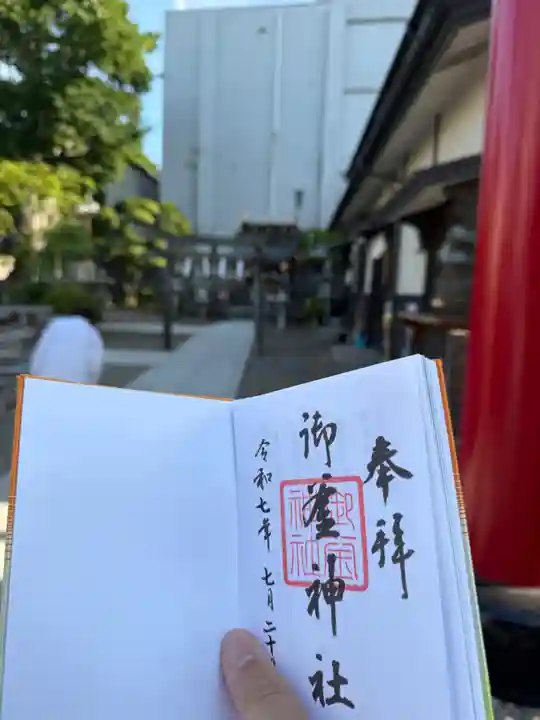 奉拝
御釜神社
御釜神社
令和七年 七月二十